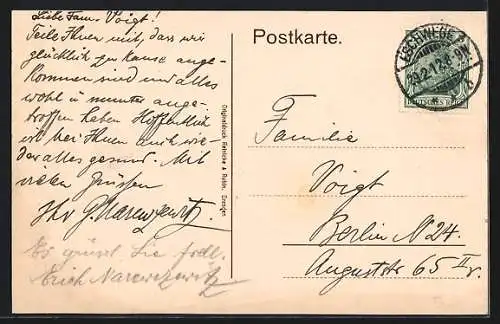 Liebe Fam. Voigt!
Teile Ihnen mit, dass wir
glücklich zu Hause ange-
kommen sind und alles
wohl u munter ange-
troffen haben Hoffentlich
ist bei Ihnen auch wie-
der alles gesund. Mit
vielen Grüssen
Ihr G. Narewczewitz
Es grüsst Sie frdl.
Erich Narewczewitz
Originaldruck Reinicke & Rubin, Dresden
Postkarte.
ESCHWEGE
DEUTSCHES REICH
Familie
Voigt
Berlin N 24.
Auguststr 65 II r.